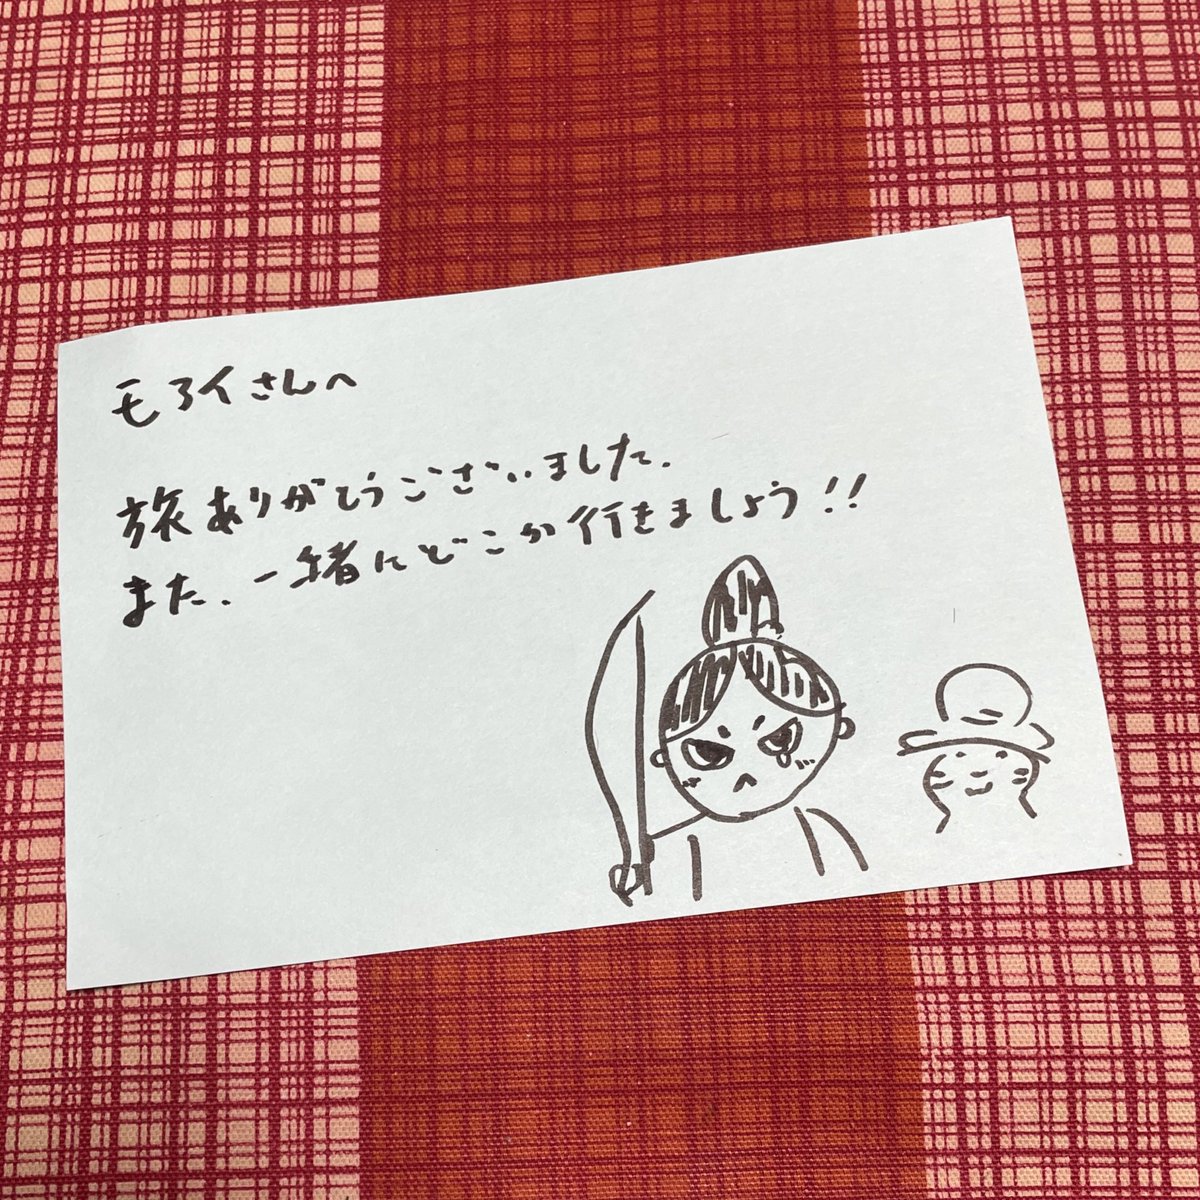 モアイさんへ
旅ありがとうございました.
また、一緒にどこか行きましょう!!